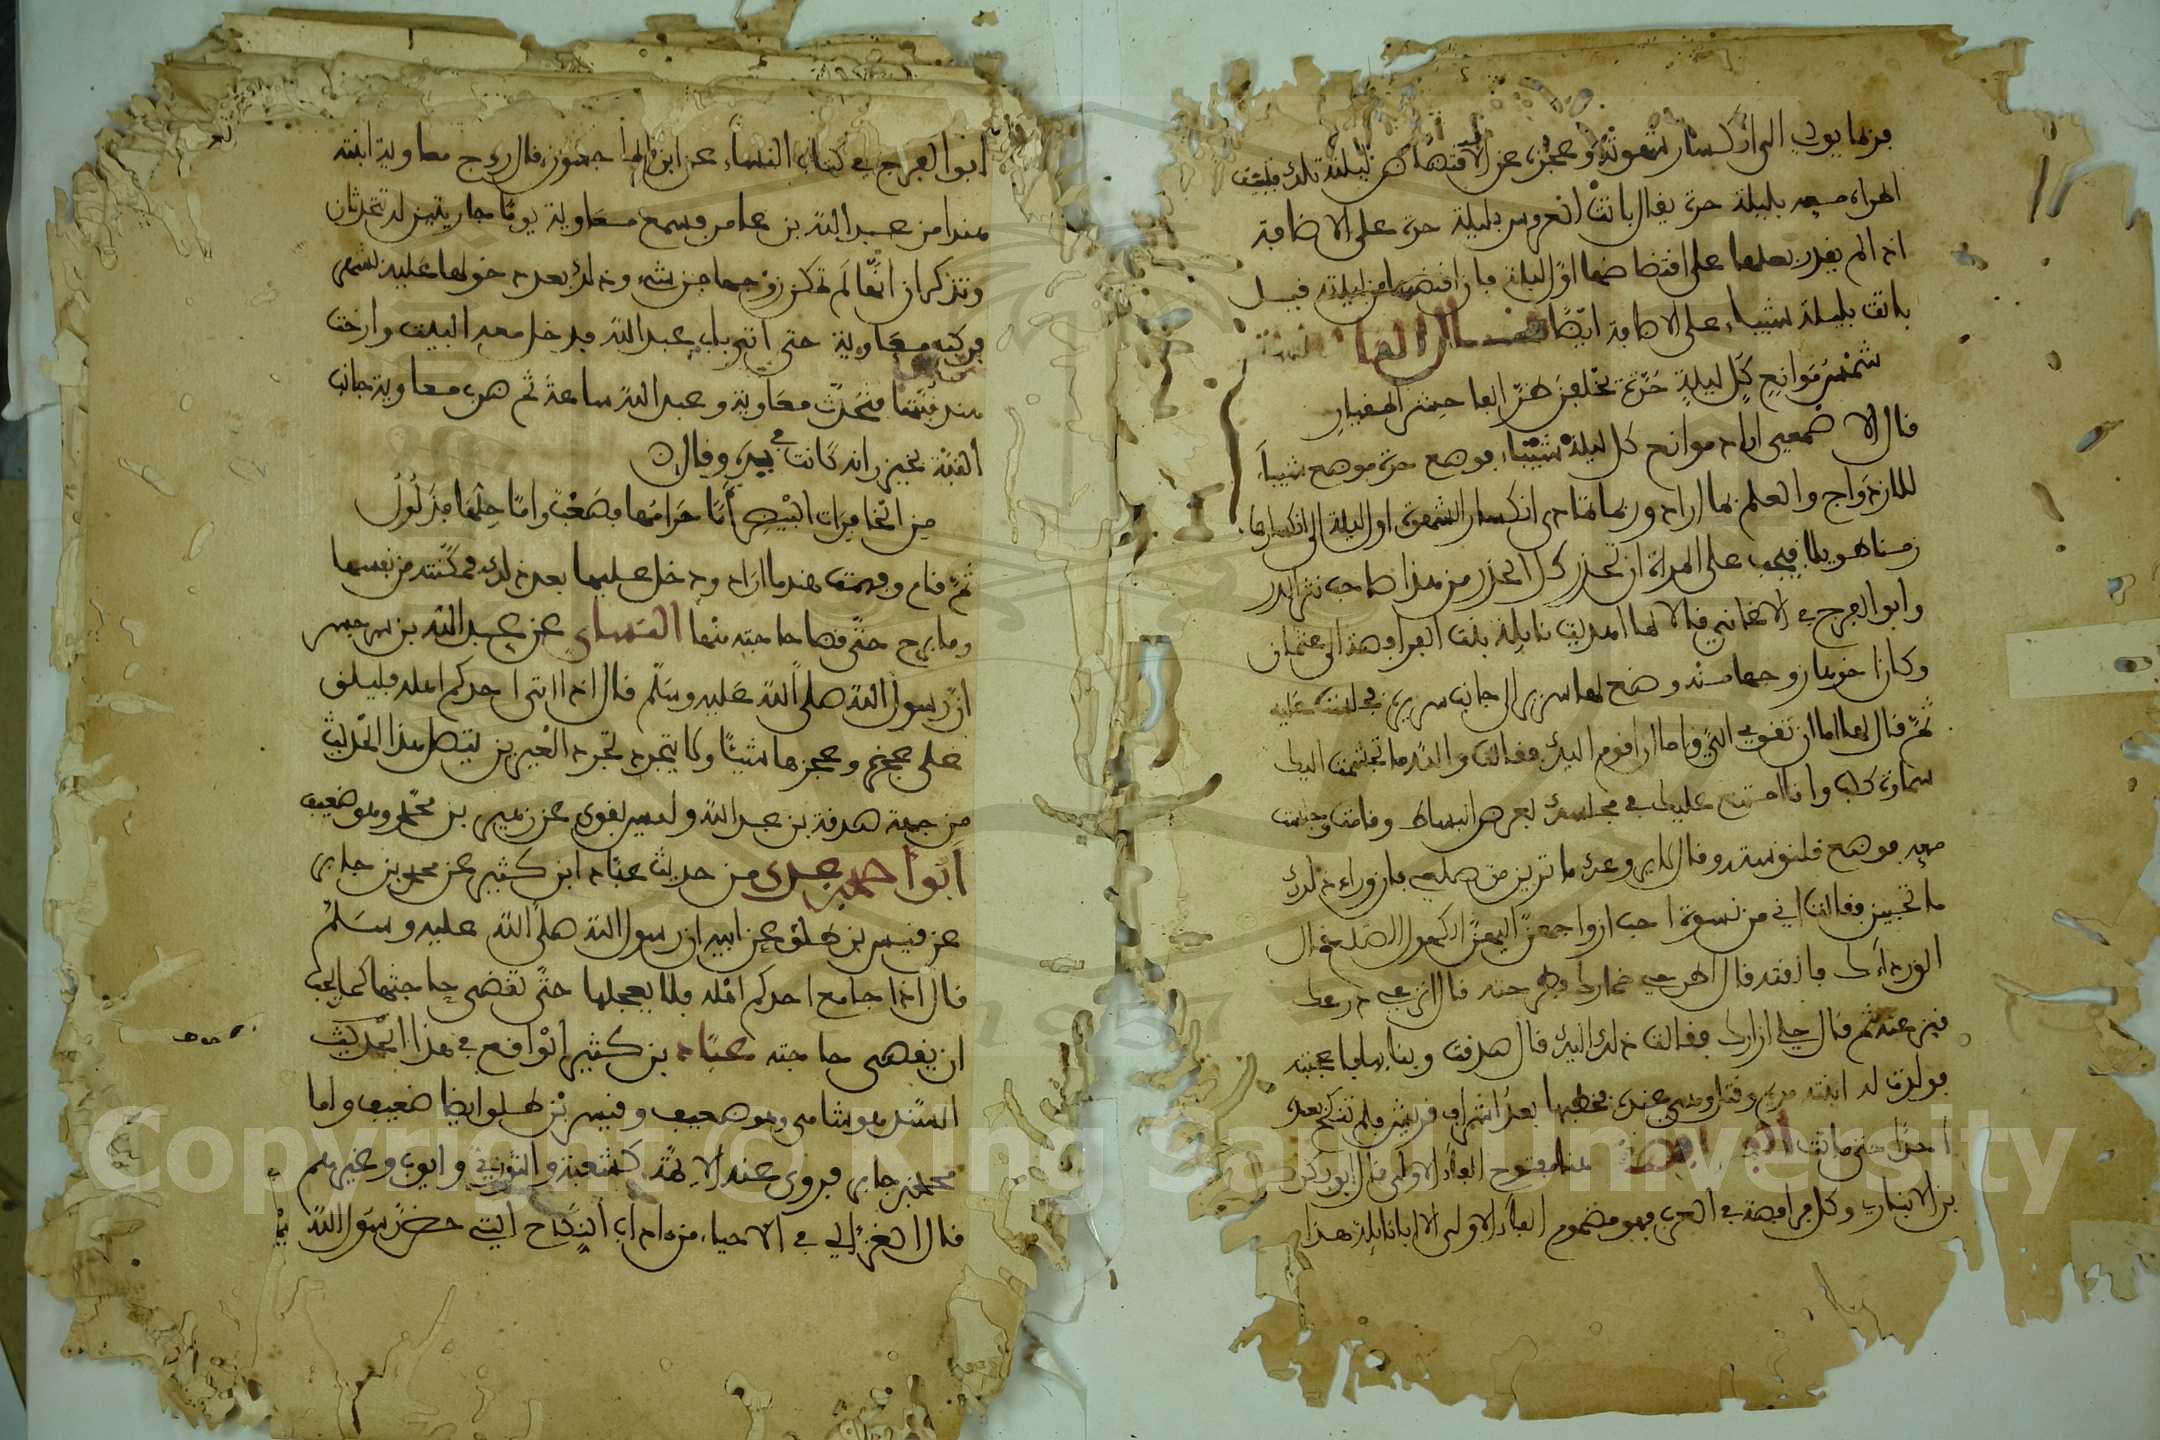 فربما يودي الى انكسار شهوته وعجزه عن الاقتضاض ليلة تلك فتبيت
المراة معه بليلة حرة يقال باتت العروس بليلة حرة على الاضافة
اذا لم يقدر بعلها على اقتضاضها اول ليلة فان اقتضها من ليلته قيل
باتت بليلة شيباء على الاضافة ايضا قال النابغة
شمس موانع كل ليلة حرة يخلفن ظن الفاحش المغيار
قال الاصمعي اراد موانع كل ليلة شيباء فوضع حرة موضع شيباء
للازدواج والعلم بما اراد وربما تمادى انكسار الشهوة اول ليلة الى انكسارها
زمنا طويلا فيجب على المراة ان تحذر كل الحذر من هذا صاحب نثر الدر
وابو الفرج في الاغاني قالا لما اهديت نايلة بنت الفرافصة الى عثمان
وكان اخوها زوجها منه وضع لها سريرا الى جانب سريره فجلست عليه
ثم قال لها اما ان تقومي الي واما ان اقوم اليك فقالت والله ما تجشمت اليك
سماوة كلب وانا امتنع عليك في مجلسك بعرض البساط وقامت وجلست
معه فوضع قلنسوته وقال لا يروعك ما ترين من صلعي فان وراء ذلك
ما تحبين فقالت اني من نسوة احب ازواجهن اليهن الكهول الصلع قال
الق رداءك فالقته قال اطرحي خمارك فطرحته قال انزعي درعك
فنزعته ثم قال حلي ازارك فقالت ذلك اليك قال صدقت وبنا بها فاعجبته
فولدت له ابنته مريم وقتل وهي عنده فخطبها بعد اشراف قريش فلم تنكح بعده
احدا حتى ماتت الفرافصة هنا مفتوح الفاء الاولى قال ابو بكر
بن الانباري وكل فرافصة في العرب فهو مضموم الفاء الاولى الا ابا نايلة هذا
ابوا الفرج في كتاب النساء عن ابن الماجشون قال زوج معاوية ابنته
هندا من عبد الله بن عامر فسمع معاوية يوما جاريتين له تتحدثان
وتذكران انها لم تمكن زوجها من شيء وذلك بعد دخولها عليه بشهر
فركب معاوية حتى اتى باب عبد الله فدخل معه البيت وارخت
هند قبتها فتحدث معاوية وعبد الله ساعة ثم ضرب معاوية جانب
القبة بخيزرانة كانت في يده وقال
من الخافرات البيض اما حرامها فصعب واما حلها فذلول
ثم قام وفهمت هند ما اراد ودخل عليها بعد ذلك فمكنته من نفسها
وما برح حتى قضا حاجته منها النساي عن عبد الله بن سرجس
ان رسول الله صلى الله عليه وسلم قال اذا اتى احدكم اهله فليلق
على عجزه وعجزها شيئا ولا يتجرد تجرد العيرين يتصل هذا الحديث
من جهة صدقة بن عبد الله وليس بقوي عن زهير بن محمد وهو ضعيف
ابوا احمد عدى من حديث عباد ابن كثير عن محمد بن جابر
عن قيس بن طلق عن ابيه ان رسول الله صلى الله عليه وسلم
قال اذا جامع احدكم اهله فلا يعجلها حتى تقضى حاجتها كما يحب
ان يقضى حاجته عباد بن كثير الواقع في هذا الحديث
السند هو شامي وهو ضعيف وقيس بن طلق ايضا ضعيف واما
محمد بن جابر فروى عنه الايمة كشعبة والثوري وايوب وغيرهم
قال الغزالي في الاحياء من اداب النكاح التي حض رسول الله